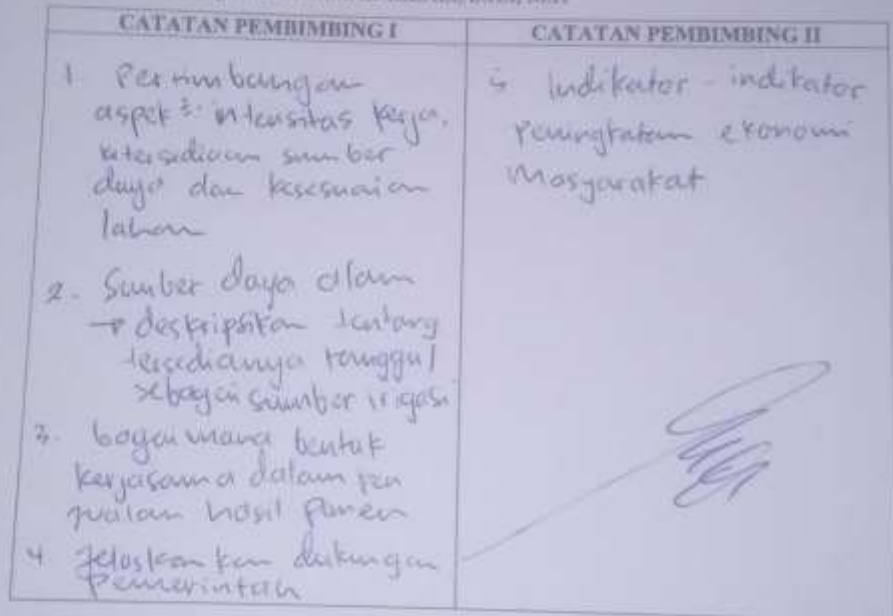 CATATAN PEMBIMBING I
1 Pertimbangan
aspek²: intensitas kerja,
ketersediaan sumber
daya dan kesesuaian
lahan
2. Sumber daya alam
→ deskripsikan tentang
tersedianya tanggul
sebagai sumber irigasi
3. bagaimana bentuk
kerjasama dalam pen
jualan hasil panen
4 Jelaskan kan dukungan
Pemerintah
CATATAN PEMBIMBING II
Indikator - indikator
Peningkatan ekonomi
Masyarakat